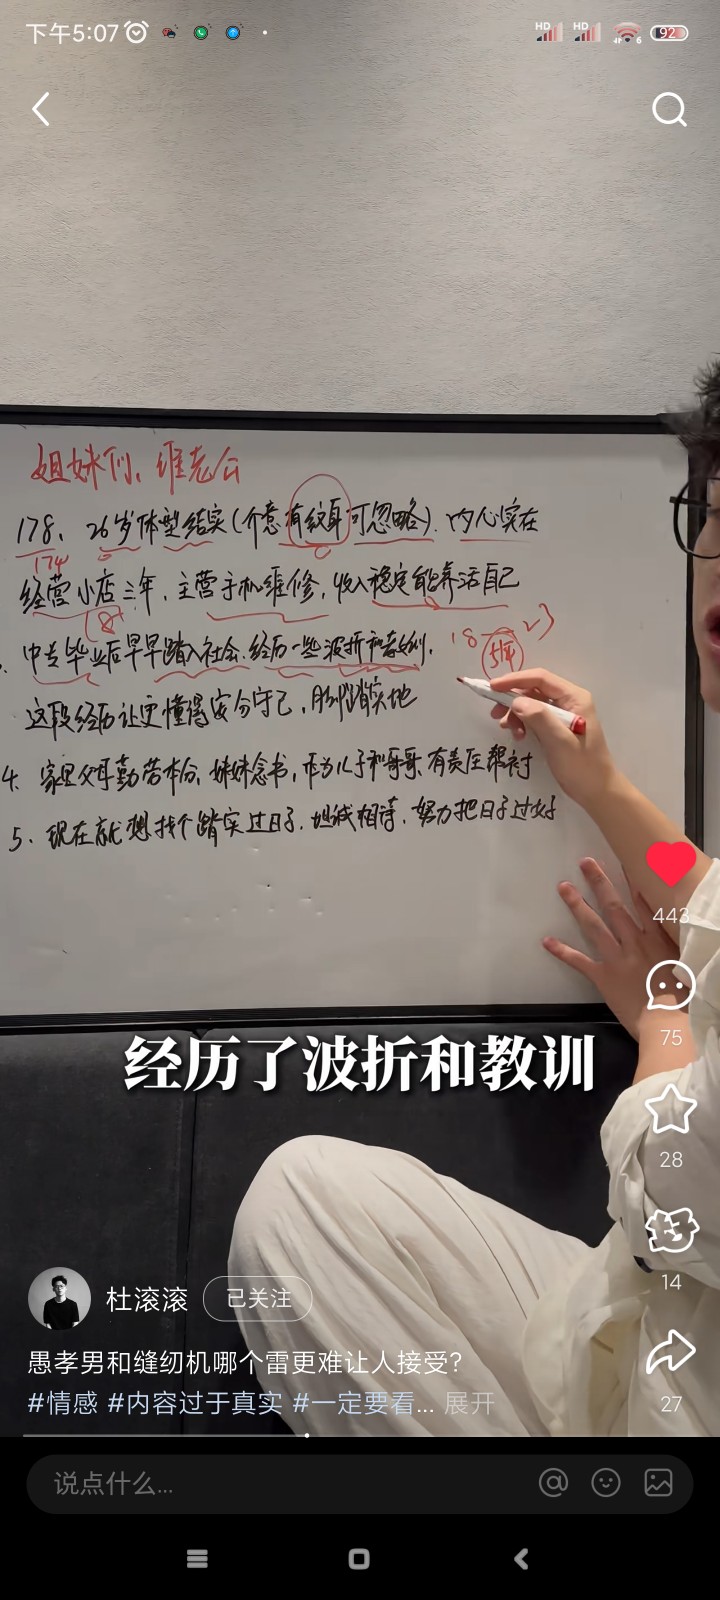 下午5:07
HD
HD
6
92
姐妹们、维老公
178、26岁体型结实(介意有纹身可忽略)、内心实在
174
经营小店三年，主营手机维修，收入稳定能养活自己
(8
中专毕业后早早踏入社会、经历一些波折和教训，
18 23
5年
这段经历让更懂得安分守己，脚踏实地
4、家里父母勤劳本分，妹妹念书，作为儿子和哥哥、有责任帮衬
5、现在就想找个踏实过日子、坦诚相待、努力把日子过好
443
75
经历了波折和教训
28
14
杜滚滚 已关注
愚孝男和缝纫机哪个雷更难让人接受?
27
#情感 #内容过于真实 #一定要看... 展开
说点什么...